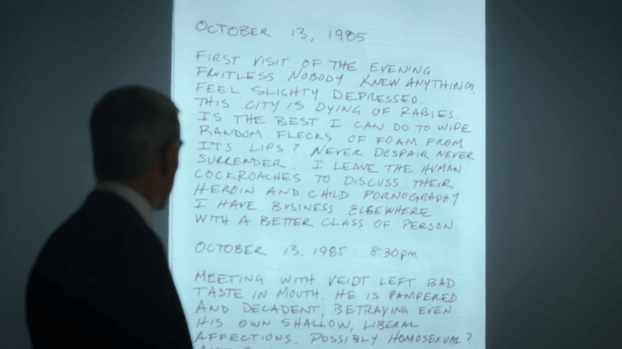 OCTOBER 13, 1985
FIRST VISIT OF THE EVENING
FRUITLESS NOBODY KNEW ANYTHING.
FEEL SLIGHTY DEPRESSED.
THIS CITY IS DYING OF RABIES.
IS THE BEST I CAN DO TO WIPE
RANDOM FLECKS OF FOAM FROM
ITS LIPS? NEVER DESPAIR NEVER
SURRENDER. I LEAVE THE HUMAN
COCKROACHES TO DISCUSS THEIR
HEROIN AND CHILD PORNOGRAPHY
I HAVE BUSINESS ELSEWHERE
WITH A BETTER CLASS OF PERSON.
OCTOBER 13. 1985 8:30pm
MEETING WITH VEIDT LEFT BAD
TASTE IN MOUTH. HE IS PAMPERED
AND DECADENT, BETRAYING EVEN
HIS OWN SHALLOW, LIBERAL
AFFECTIONS. POSSIBLY HOMOSEXUAL?